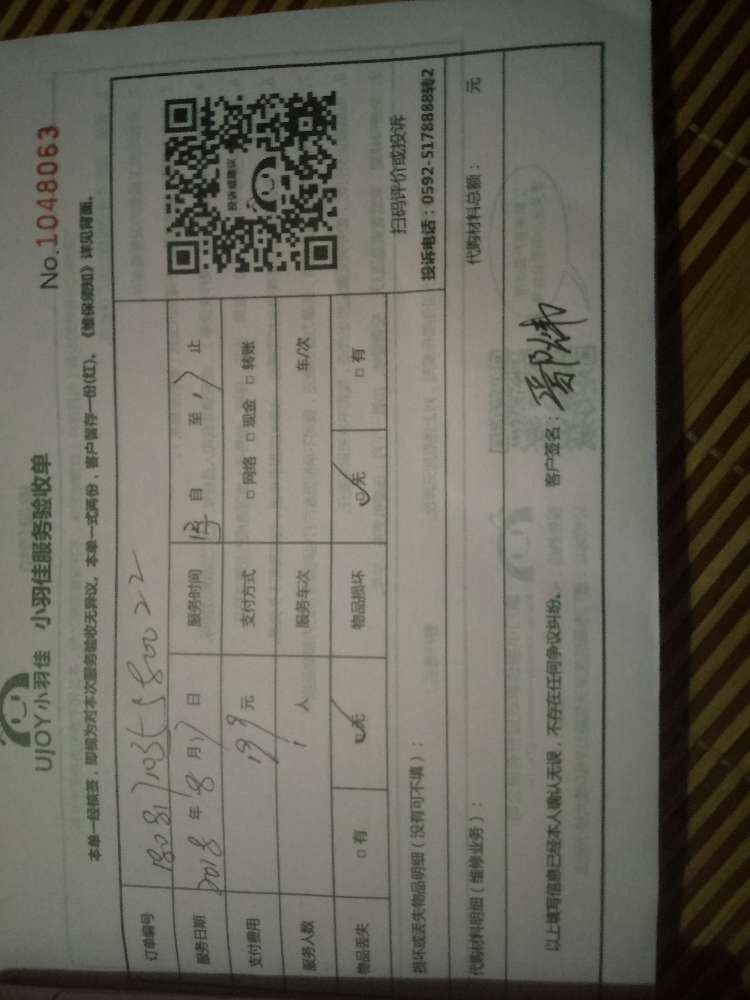 UJOY小羽佳 小羽佳服务验收单
No.1048063
本单一经核签，即视为对本次服务验收无异议。本单一式两份，客户留存一份(红)。《维保须知》详见背面。
订单编号
服务日期 2018 年 8 月 17 日 服务时间 自 至 17 止
支付费用 199 元 支付方式 □ 网络 □ 现金 □ 转账
服务人数 1 人 服务车次 车/次
物品丢失 □ 有 □ 无 物品损坏 □ 无 □ 有
投诉或建议
扫码评价或投诉
投诉电话：0592-5178888转2
损坏或丢失物品明细（没有可不填）：
代购材料明细（维修业务）： 代购材料总额： 元
以上填写信息已经本人确认无误，不存在任何争议纠纷。 客户签名：鄢炜